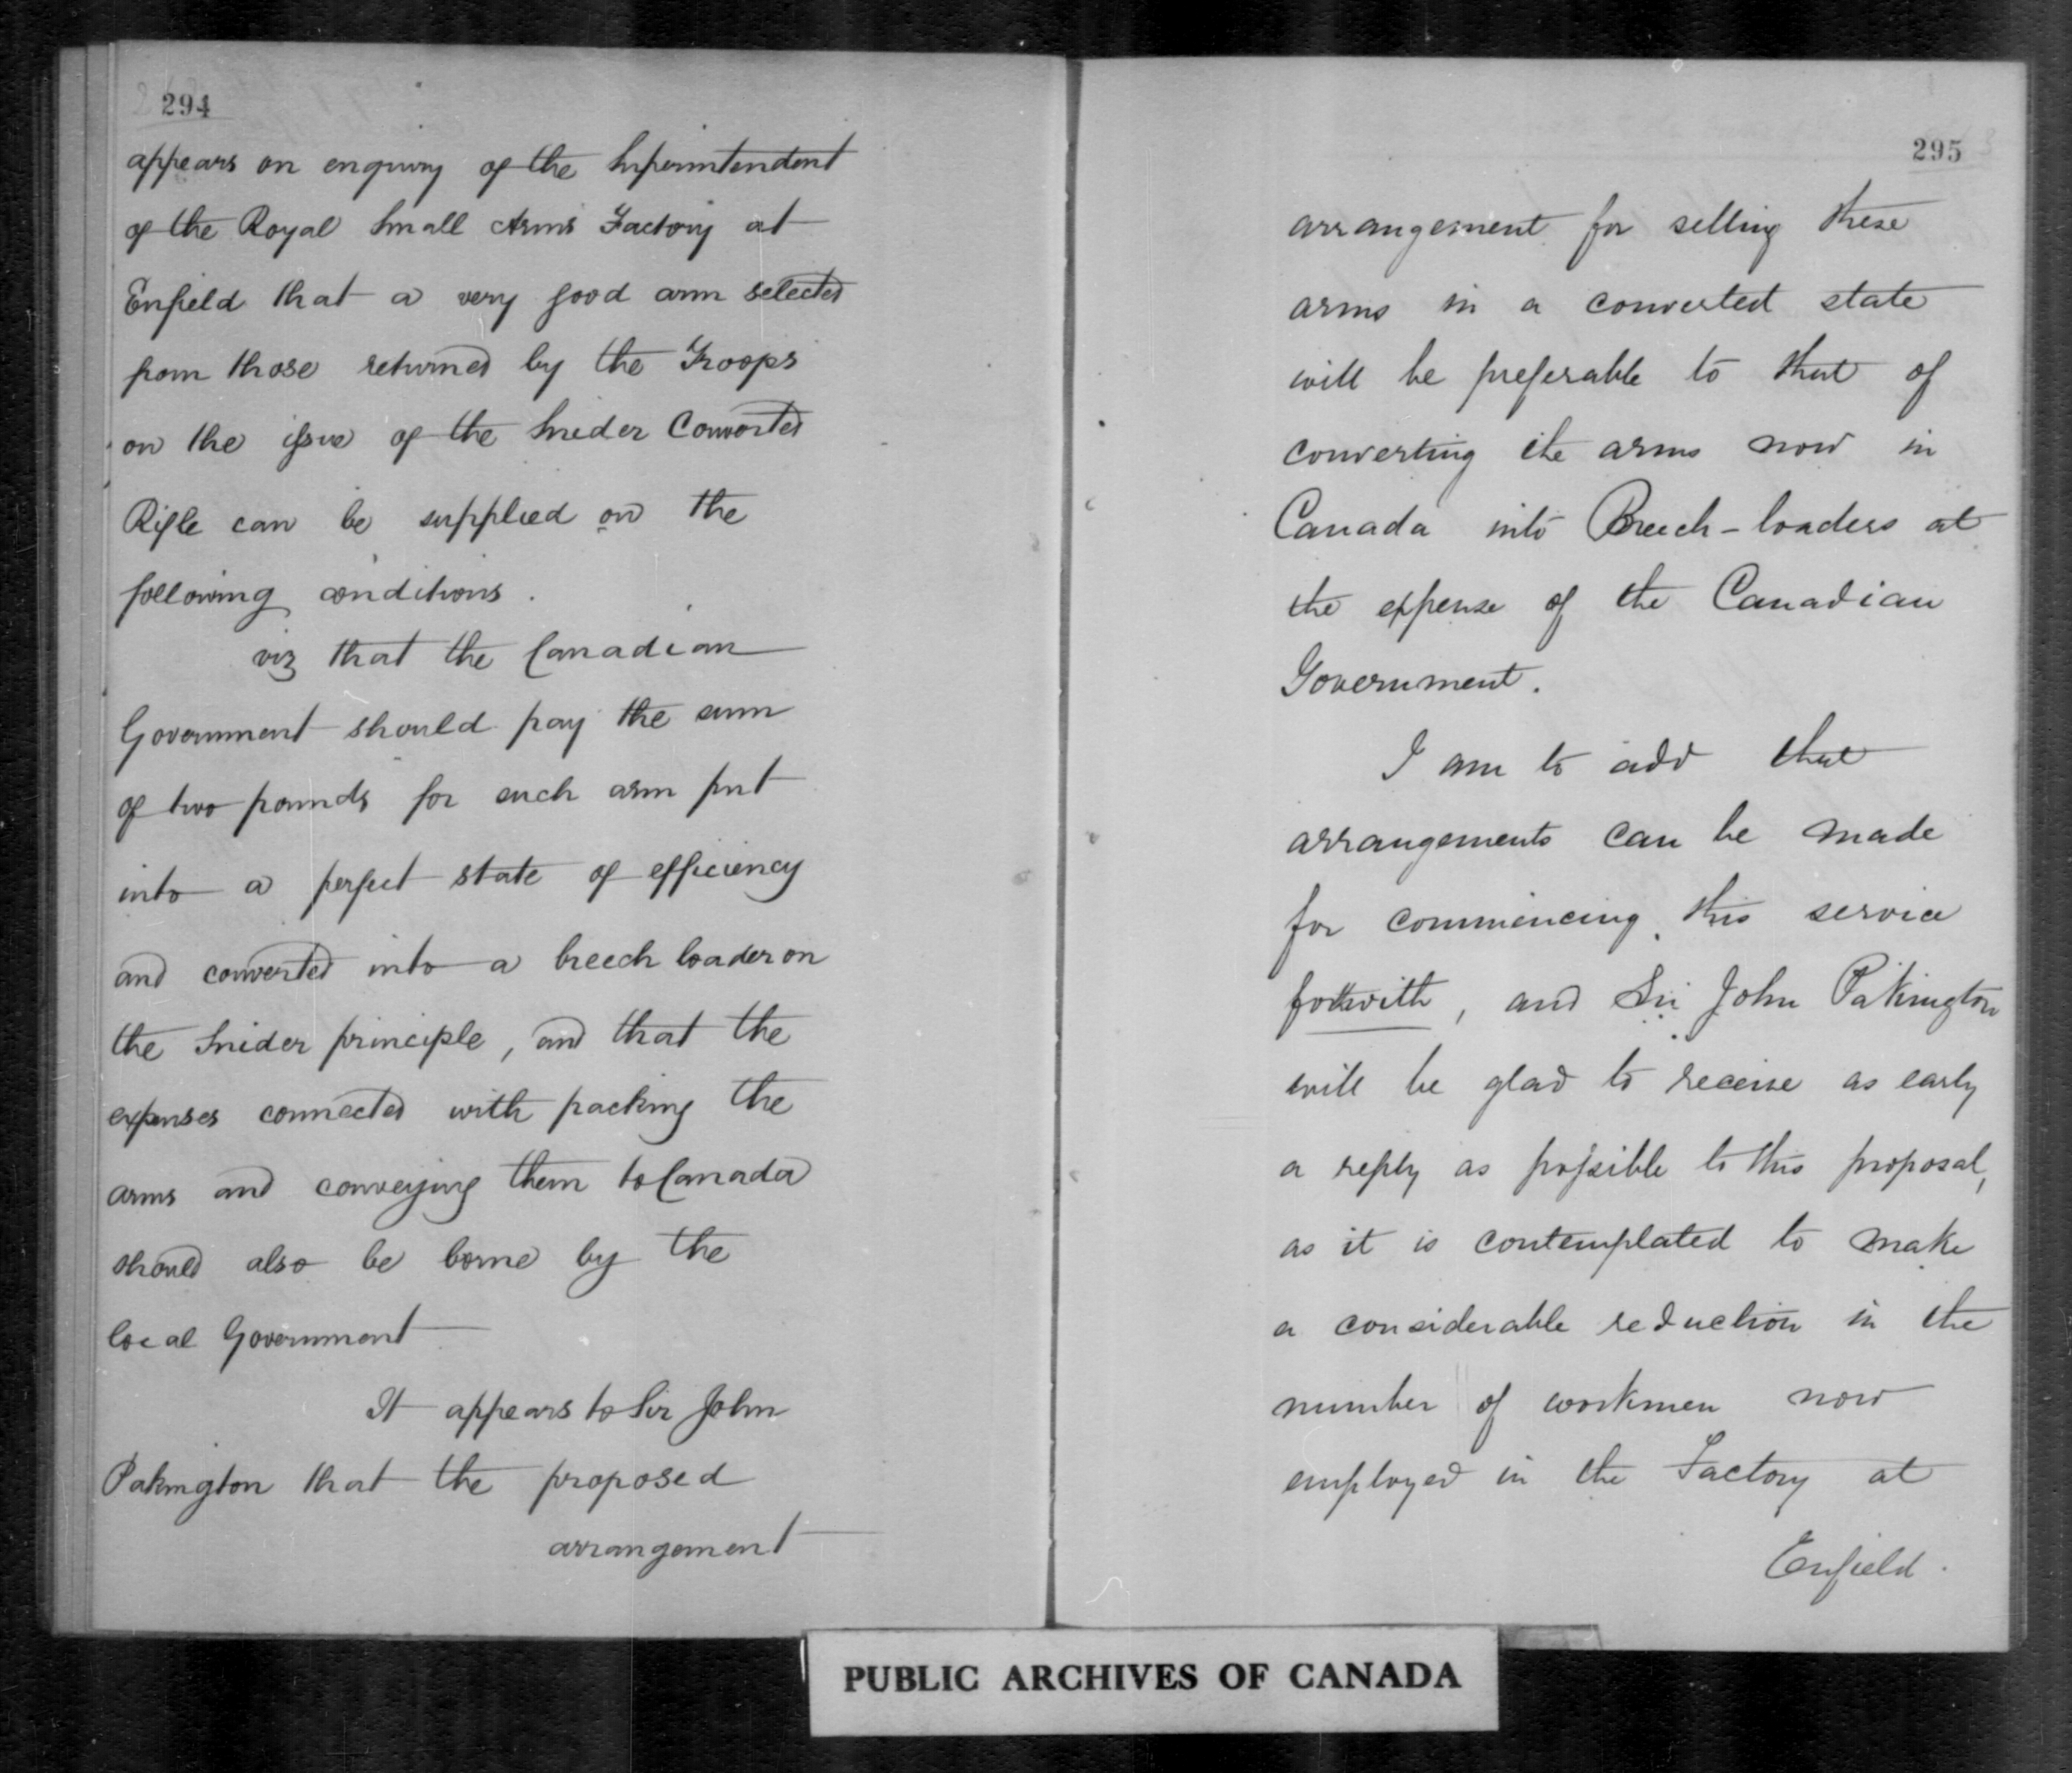 294
appears on enquiry of the Superintendent
of the Royal Small Arms Factory at
Enfield that a very good arm selected
from those returned by the Troops
on the issue of the Snider Converted
Rifle can be supplied on the
following conditions.
viz that the Canadian
Government should pay the sum
of two pounds for each arm put
into a perfect state of efficiency
and converted into a breech loader on
the Snider principle, and that the
expenses connected with packing the
arms and conveying them to Canada
should also be borne by the
local Government
It appears to Sir John
Pakington that the proposed
arrangement
295
arrangement for selling these
arms in a converted state
will be preferable to that of
converting the arms now in
Canada into Breech-loaders at
the expense of the Canadian
Government.
I am to add that
arrangements can be made
for commencing this service
forthwith, and Sir John Pakington
will be glad to receive as early
a reply as possible to this proposal,
as it is contemplated to make
a considerable reduction in the
number of workmen now
employed in the Factory at
Enfield.
PUBLIC ARCHIVES OF CANADA